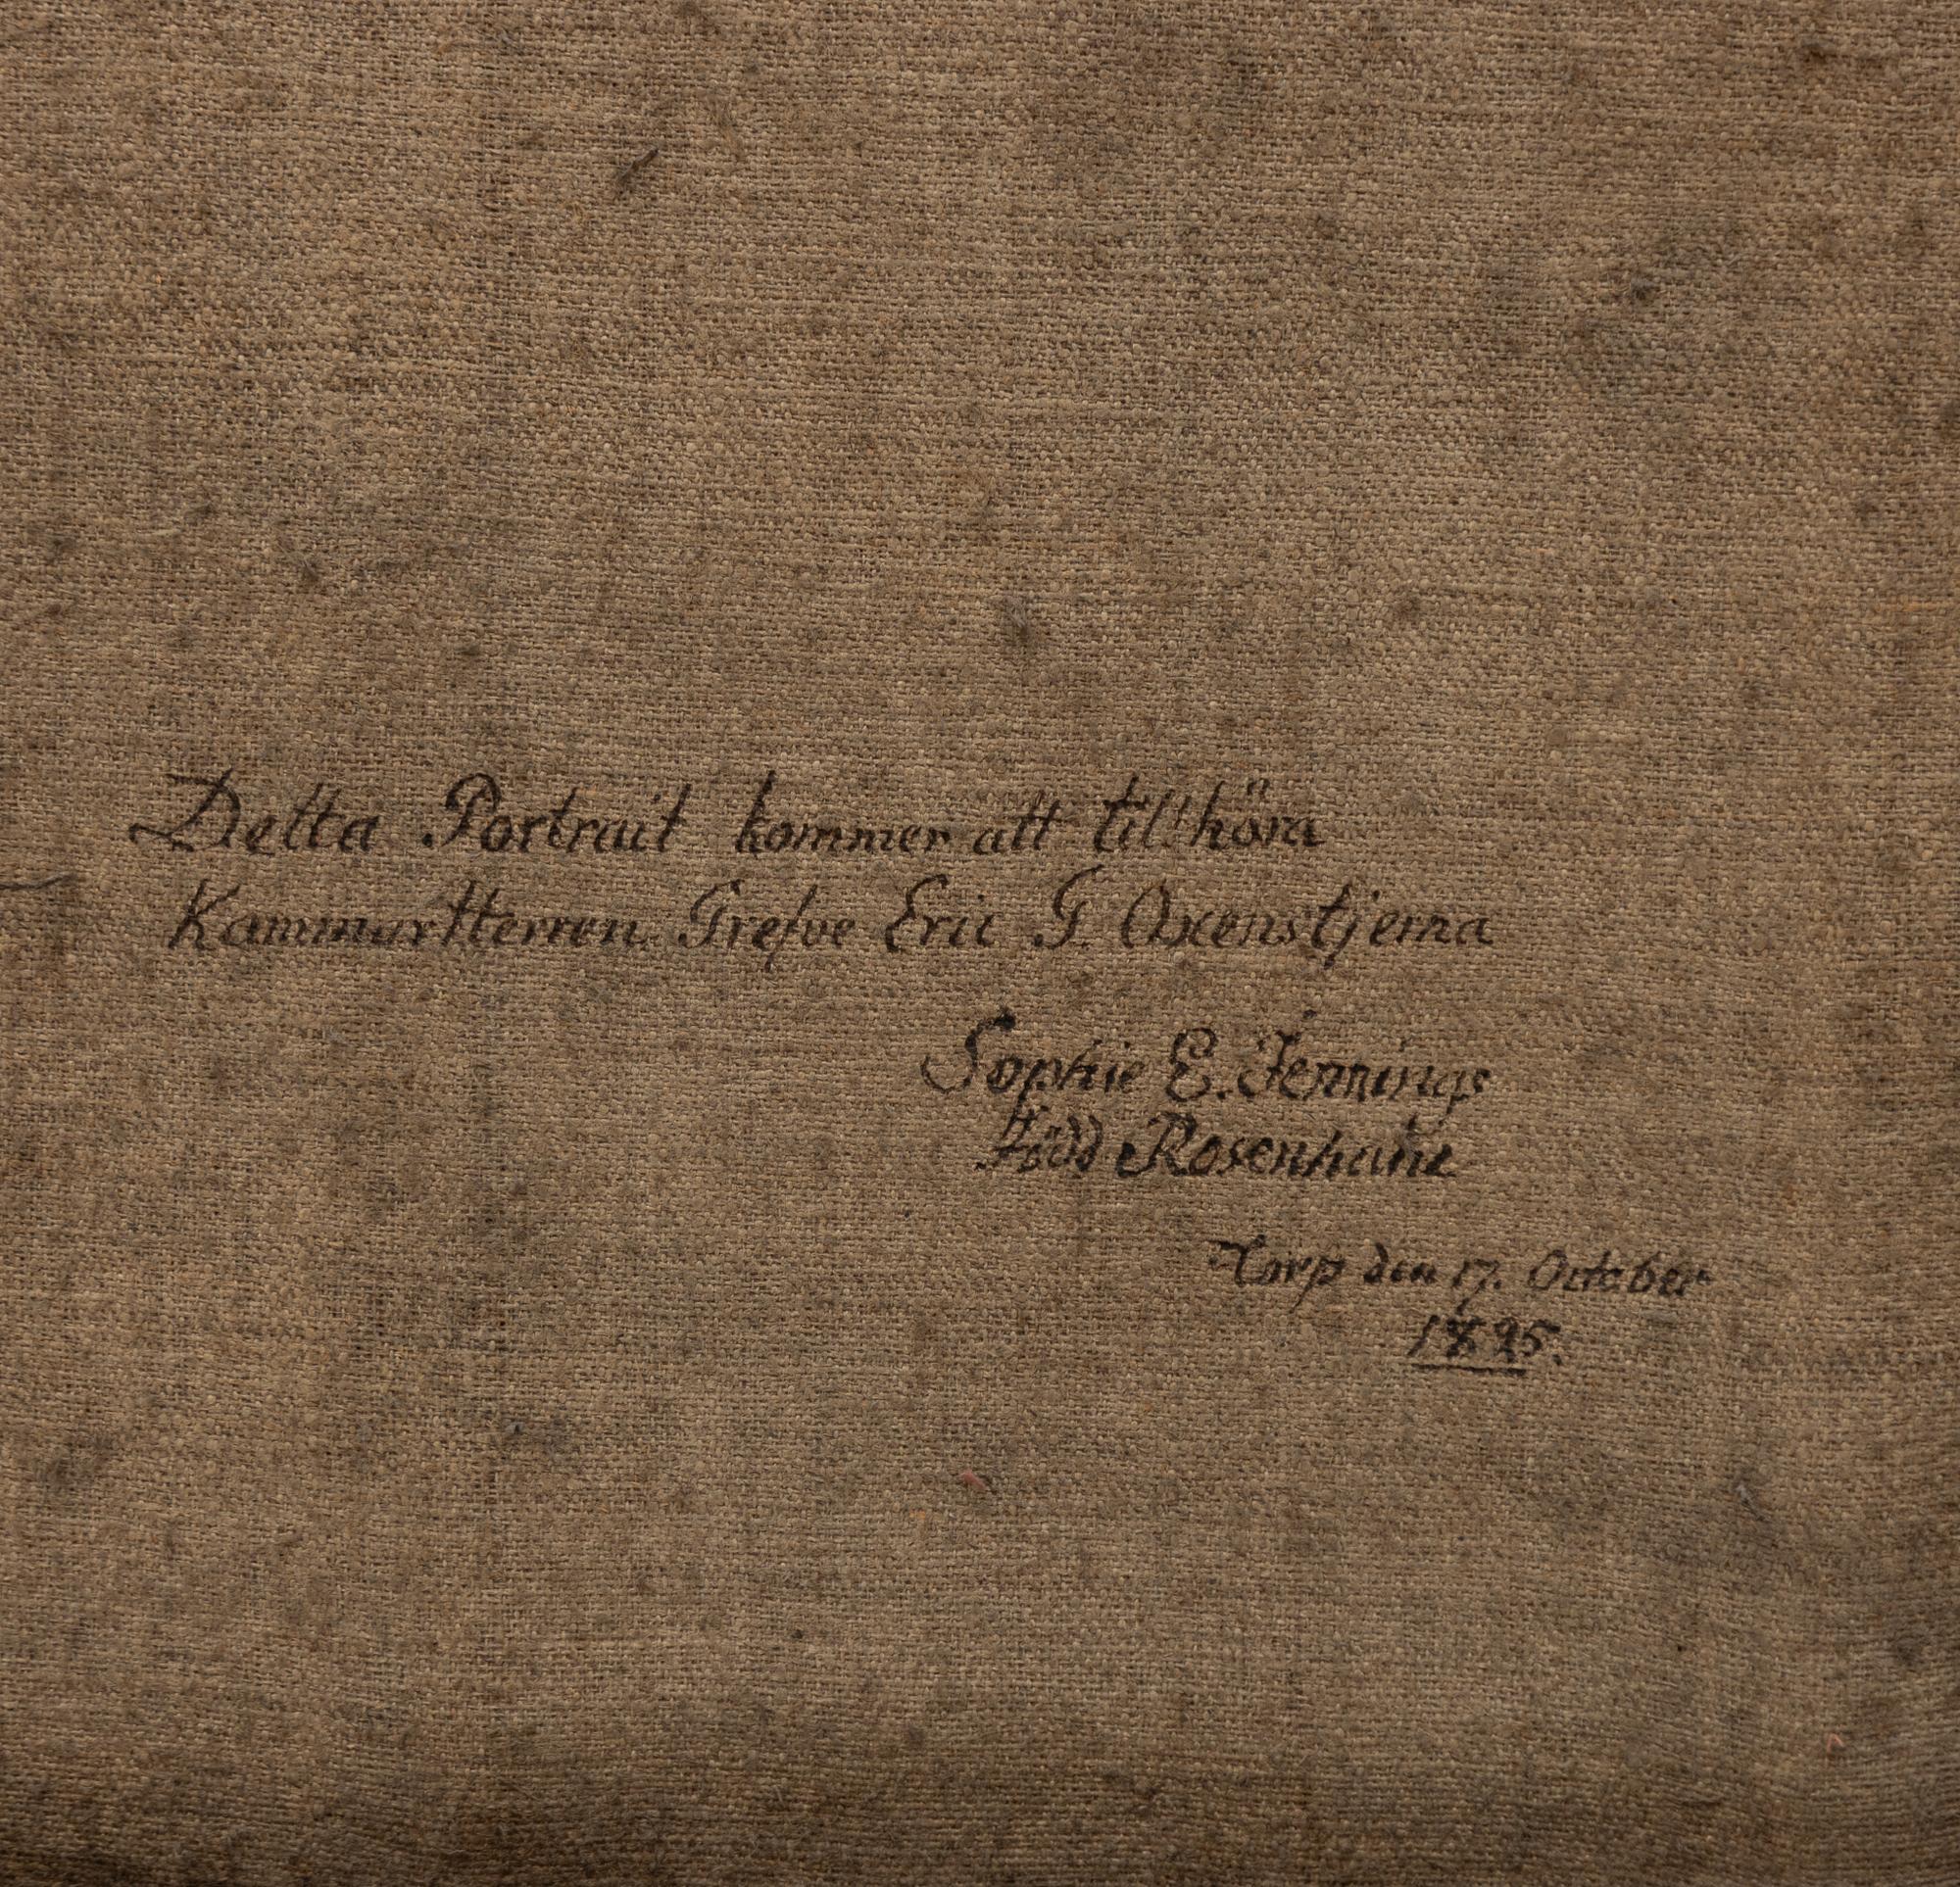 Detta Portrait kommer att tillhöra
KammarHerren Grefve Eric G. Oxenstjerna
Sophie E. Jennings
född Rosenhane
Torp den 17. October
1825.